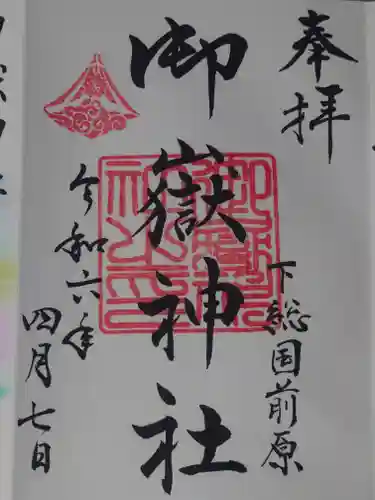 奉拝
下総国前原
御嶽神社
令和六年
四月七日